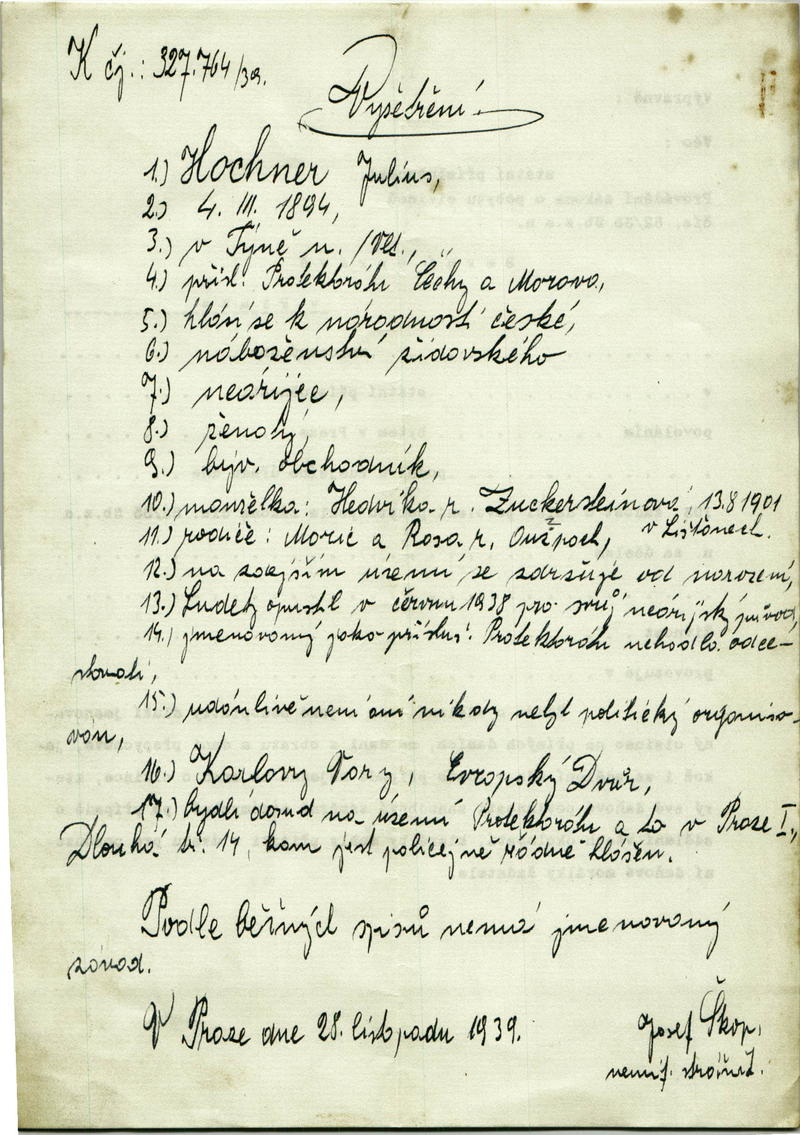 K čj.: 327.764/39.
Vyšetření.
1.) Hochner Julius,
2.) 4. III. 1894,
3.) v Týně n./Vlt.,
4.) přísl. Protektorátu Čechy a Morava,
5.) hlásí se k národnosti české,
6.) náboženství židovského
7.) neárijec,
8.) ženatý,
9.) býv. obchodník,
10.) manželka: Hedvika r. Zuckersteinová, 13.8 1901
v Lišťanech.
11.) rodiče: Moric a Rosa r.
12.) na zdejším území se zdržuje od narození,
13.) Sudety opustil v červnu 1938 pro svůj neárijský původ,
14.) jmenovaný jako přísluš. Protektorátu nehodlá odce-
stovati,
15.) udánlivě není ani nikdy nebyl politicky organiso-
ván,
16.) Karlovy Vary, Evropský Dvůr,
17.) bydlí dosud na území Protektorátu a to v Praze I.,
Dlouhá tř. 14, kam jest policejně řádně hlášen.
Podle běžných spisů nemá jmenovaný
závod.
V Praze dne 28. listopadu 1939.
Josef Škop,
neunif. strážník.